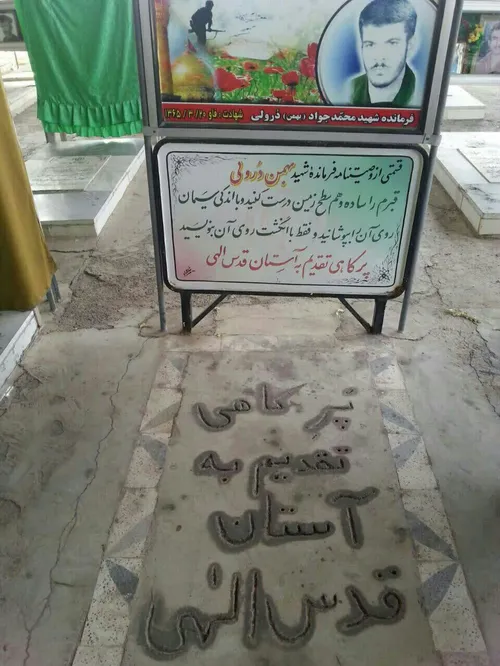 فرمانده شهید محمدجواد (بهمن) دُرولی شهادت: فاو ۱۳۶۵/۳/۲۰
قسمتی از وصیت‌نامه فرمانده شهید بهمن دُرولی
قبرم را ساده و هم سطح زمین درست کنید و با اندکی سیمان
روی آن را بپوشانید و فقط با انگشت روی آن بنویسید
پر کاهی تقدیم به آستان قدس الهی
پَرِ کاهی
تقدیم به
آستان
قدس الهٰی